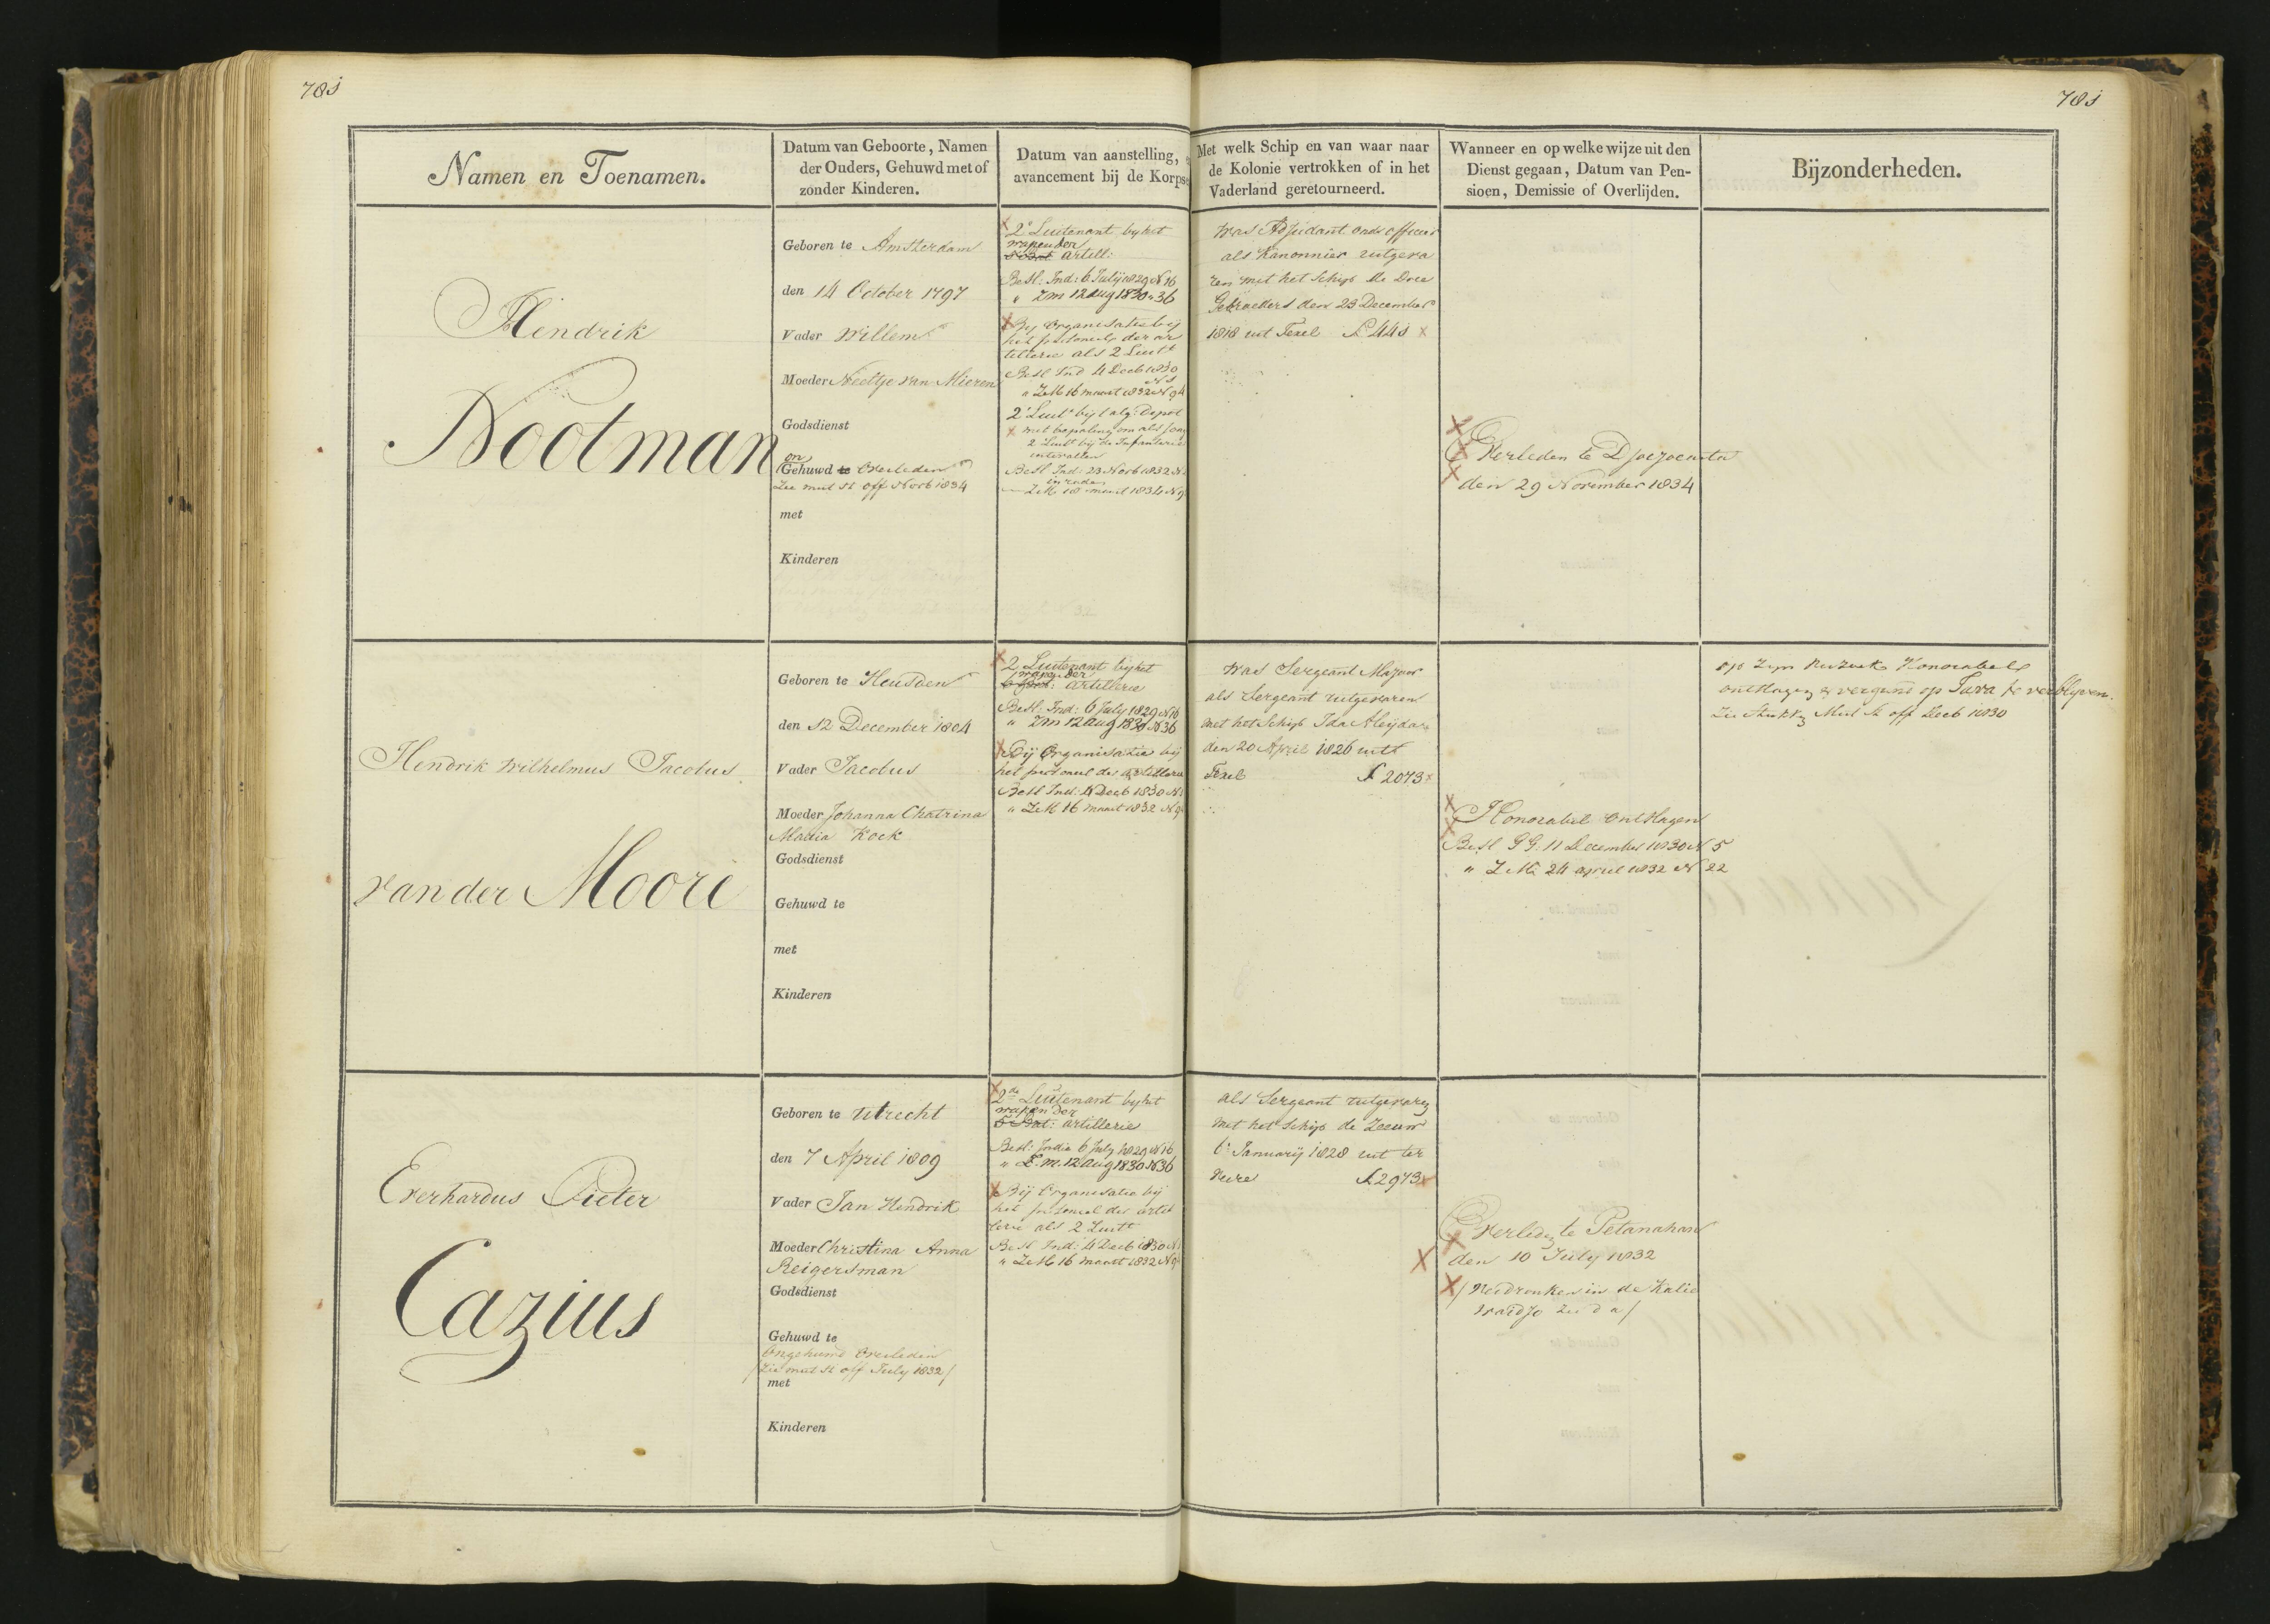 781
781
Namen en Toenamen.
Datum van Geboorte, Namen
der Ouders, Gehuwd met of
zonder Kinderen.
Datum van aanstelling,
avancement bij de Korpse
Met welk Schip en van waar naar
de Kolonie vertrokken of in het
Vaderland geretourneerd.
Wanneer en op welke wijze uit den
Dienst gegaan, Datum van Pen-
sioen, Demissie of Overlijden.
Bijzonderheden.
Hendrik
Nootman
Geboren te Amsterdam
den 14 October 1797
Vader Willem
Moeder Neeltje van Mieren
Godsdienst
on
Gehuwd te Overleden
Zie mut st off Novb 1834
met
Kinderen
2e Luitenant by het
wapen der
artill:
Besl: Ind: 6 July 1829 N 16
" Zm 12 aug 1830 " 36
By Organisatie bij
het personeel der ar
tillerie als 2 Luitt
Besl Ind 4 Decb 1830
N 1
" ZMK 16 maart 1832 N 94
2e Luitt bij t alg: Depot
met bepaling om als jong
2 Luitt bij de Infanterie
intevallen
Besl Ind: 23 Novb 1832 N
ZMK 18 maart 1834 N 9
was Adjudant onder officier
als Kanonnier uitgeva
ren met het Schip de Drie
Gebroeders den 23 December
1818 uit Texel
Overleden te Djocjocarta
den 29 November 1834
Hendrik Wilhelmus Jacobus
van der Moore
Geboren te Heusden
den 12 December 1804
Vader Jacobus
Moeder Johanna Chatrina
Maria Kock
Godsdienst
Gehuwd te
met
Kinderen
2 Luitenant by het
wapen der
artillerie
Besl: Ind: 6 July 1829 N 16
" Zm 12 aug 1830 N 36
Bij Organisatie bij
het personeel der artillerie
Besl Ind: 4 Decb 1830 N 1
" ZMK 16 maart 1832 N 9
was Sergeant Majoor
als Sergeant uitgevaren
met het Schip Ida Aleijda
den 20 April 1826 uit
Texel 2073
Honorabel ontslagen
Besl GG. 11 December 1830 N 5
" ZMK 24 april 1832 N 22
op zyn verzoek Honorabel
ontslagen & vergund op Java te verblyven.
Zie Stukken Mut St off Decb 1830
Everhardus Pieter
Cazius
Geboren te Utrecht
den 7 April 1809
Vader Jan Hendrik
Moeder Christina Anna
Reigersman
Godsdienst
Gehuwd te
Ongehuwd Overleden
/Zie mut st off July 1832/
met
Kinderen
2de Luitenant by het
wapen der
5 Bat: artillerie
Besl: India 6 July 1829 N 16
" Z.m. 12 aug 1830 N 36
Bij Organisatie bij
het personeel der artil
lerie als 2 Luitt
Besl Ind: 4 Decb 1830 N 1
" ZMK 16 maart 1832 N 9
als Sergeant uitgevaren
met het schip de Zeeuw
6 Januarij 1828 uit ter
Veere 2973
Overleden te Petanahan
den 10 July 1832
/Verdronken in de Kalie